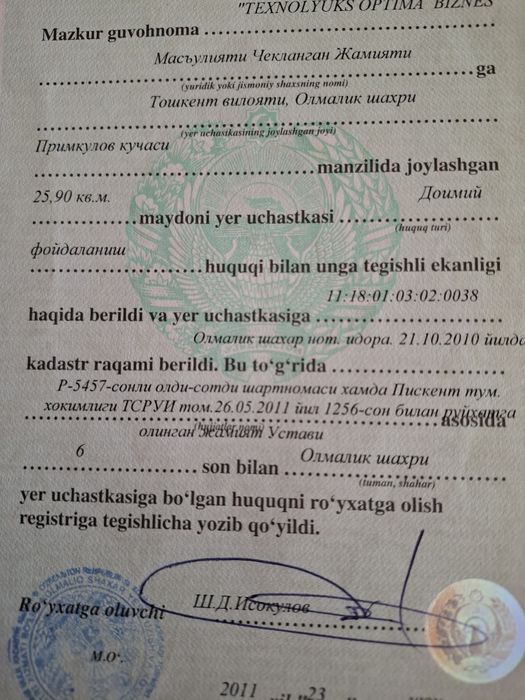 "TEXNOLYUKS OPTIMA BIZNES
Mazkur guvohnoma
Масъулияти Чекланган Жамияти
ga
(yuridik yoki jismoniy shaxsning nomi)
Тошкент вилояти, Олмалик шахри
(yer uchastkasining joylashgan joyi)
Примкулов кучаси
manzilida joylashgan
25,90 кв.м. Доимий
maydoni yer uchastkasi
(huquq turi)
фойдаланиш
huquqi bilan unga tegishli ekanligi
11:18:01:03:02:0038
haqida berildi va yer uchastkasiga
Олмалик шахар нот. идора. 21.10.2010 йилда
kadastr raqami berildi. Bu to‘g‘rida
Р-5457-сонли олди-сотди шартномаси хамда Пискент тум.
хокимлиги ТСРУИ том.26.05.2011 йил 1256-сон билан руйхатга
asosida
(hujjatlar nomi)
олинган Жамият Устави
6 Олмалик шахри
son bilan
(tuman, shahar)
yer uchastkasiga bo‘lgan huquqni ro‘yxatga olish
registriga tegishlicha yozib qo‘yildi.
Ro‘yxatga oluvchi Ш.Д.Исокулов
M.O‘.
2011 23